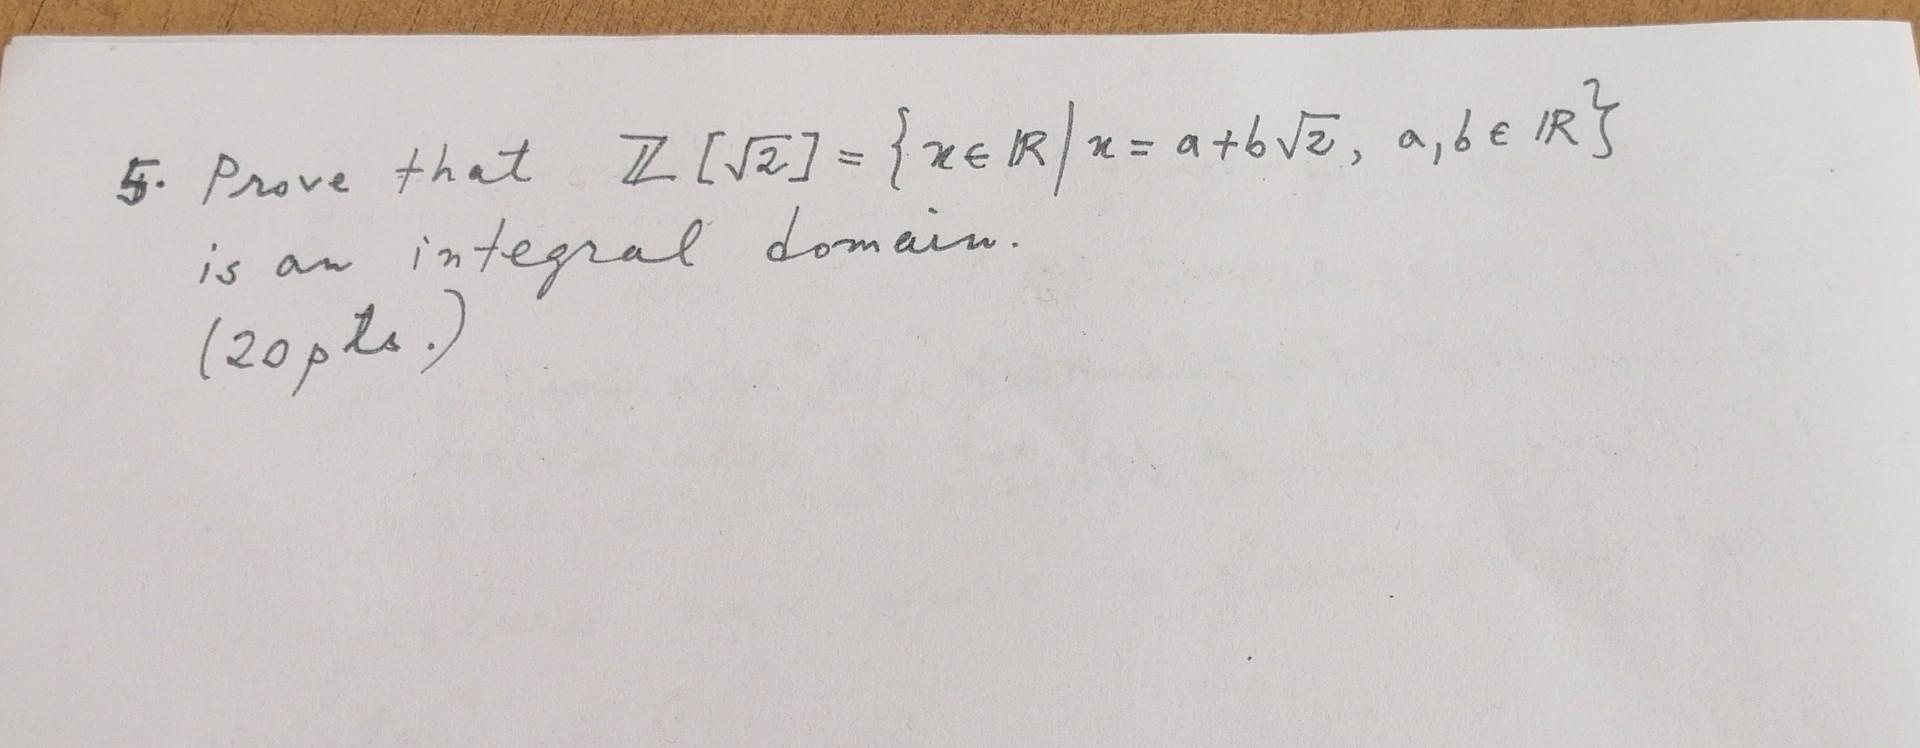 5. Prove that ℤ[√2] = {x ∈ ℝ | x = a+b√2, a,b ∈ ℝ}
is an integral domain.
(20 pts.)